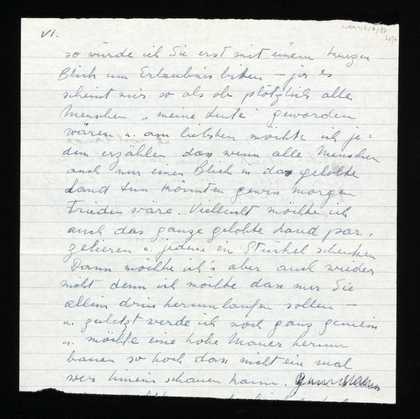 VI.
so würde ich Sie erst mit einem langen
Blick um Erlaubnis bitten – ja es
scheint mir so als ob plötzlich alle
Menschen "meine Leute" geworden
wären u. am liebsten möchte ich je-
dem erzählen dass wenn alle Menschen
auch nur einen Blick in das gelobte
Land tun könnten gewiss morgen
Frieden wäre. Vielleicht möchte ich
auch das ganze gelobte Land par-
zelieren u. jedem ein Stückel schenken
Dann möchte ich's aber auch wieder
nicht denn ich möchte dass nur Sie
allein drin herumlaufen sollen –
u. zuletzt werde ich noch ganz gemein
u. möchte eine hohe Mauer herum
bauen so hoch dass nicht ein mal
wer hinein schauen kann.